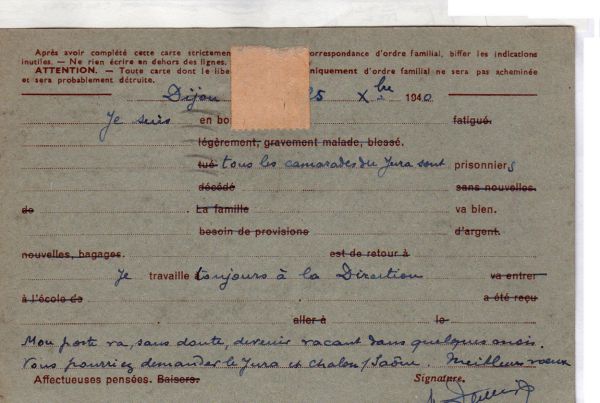 Après avoir complété cette carte strictement correspondance d'ordre familial, biffer les indications
inutiles. — Ne rien écrire en dehors des lignes.
ATTENTION. — Toute carte dont le libe uniquement d'ordre familial ne sera pas acheminée
et sera probablement détruite.
Dijon 25 Xbre 1940
Je suis en bo fatigué.
légèrement, gravement malade, blessé.
tué tous les camarades du Jura sont prisonniers
décédé sans nouvelles.
de La famille va bien.
besoin de provisions d'argent.
nouvelles, bagages. est de retour à
Je travaille toujours à la Direction va entrer
à l'école de a été reçu
aller à le
Mon poste va, sans doute, devenir vacant dans quelques mois.
Vous pourriez demander le Jura et Chalon/Saône. Meilleurs voeux
Affectueuses pensées. Baisers. Signature.